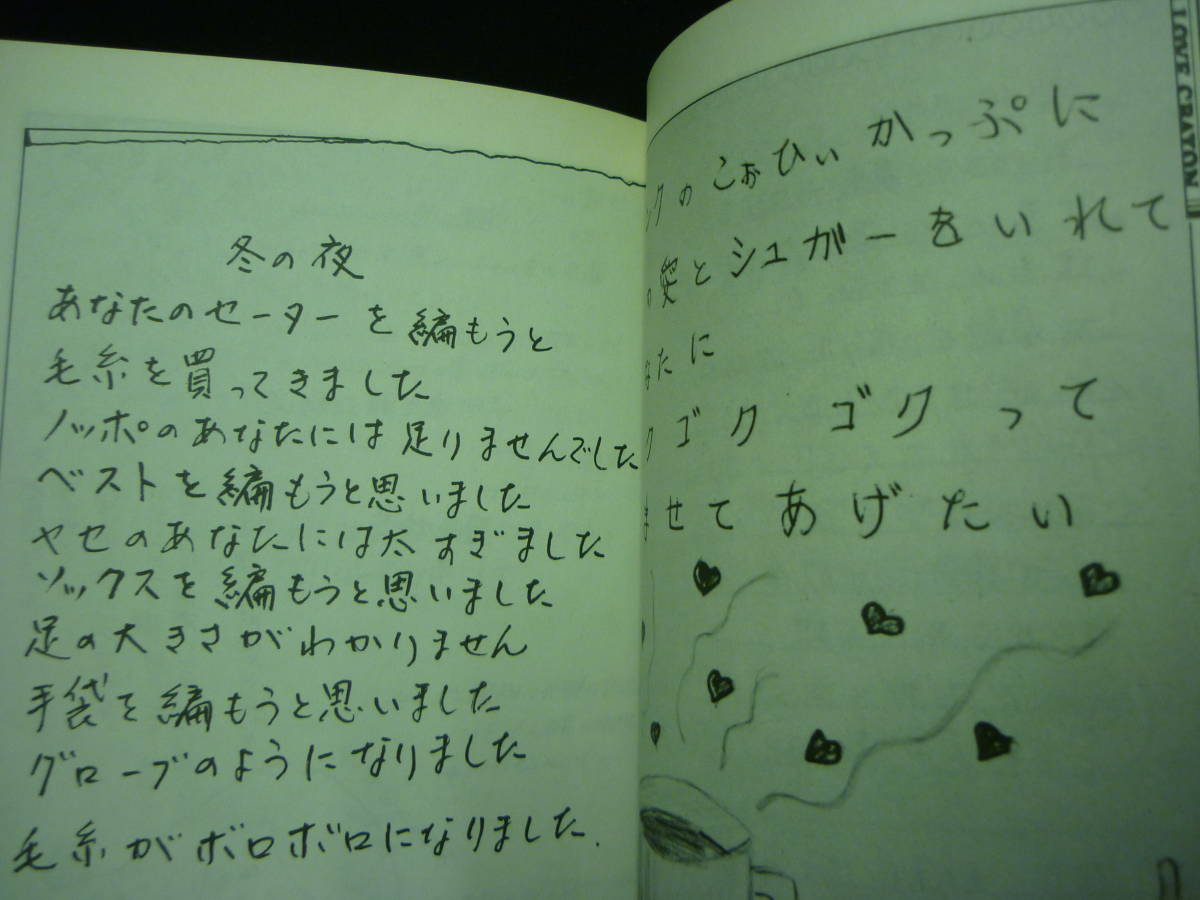 冬の夜
あなたのセーターを編もうと
毛糸を買ってきました
ノッポのあなたには足りませんでした
ベストを編もうと思いました
ヤセのあなたには太すぎました
ソックスを編もうと思いました
足の大きさがわかりません
手袋を編もうと思いました
グローブのようになりました
毛糸がボロボロになりました.
クのこぉひぃかっぷに
愛とシュガーをいれて
なたに
クゴク ゴクって
ませてあげたい
I LOVE CRAYON